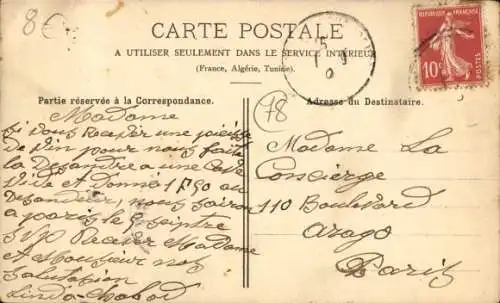 8
CARTE POSTALE
A UTILISER SEULEMENT DANS LE SERVICE INTÉRIEUR
(France, Algérie, Tunisie).
REPUBLIQUE FRANÇAISE
10c
POSTES
15
9
Partie réservée à la Correspondance.
Madame
si vous Recever une
de vin pour nous faite
la Desandre a une Cave
vide et Donné 1f50 au
Desandeur, nous
a paris le 5
SVP Recever Madame
et Monsieur nos
salutation
78
Adresse du Destinataire.
Madame La
Concierge
110 Boulevard
arago
Paris